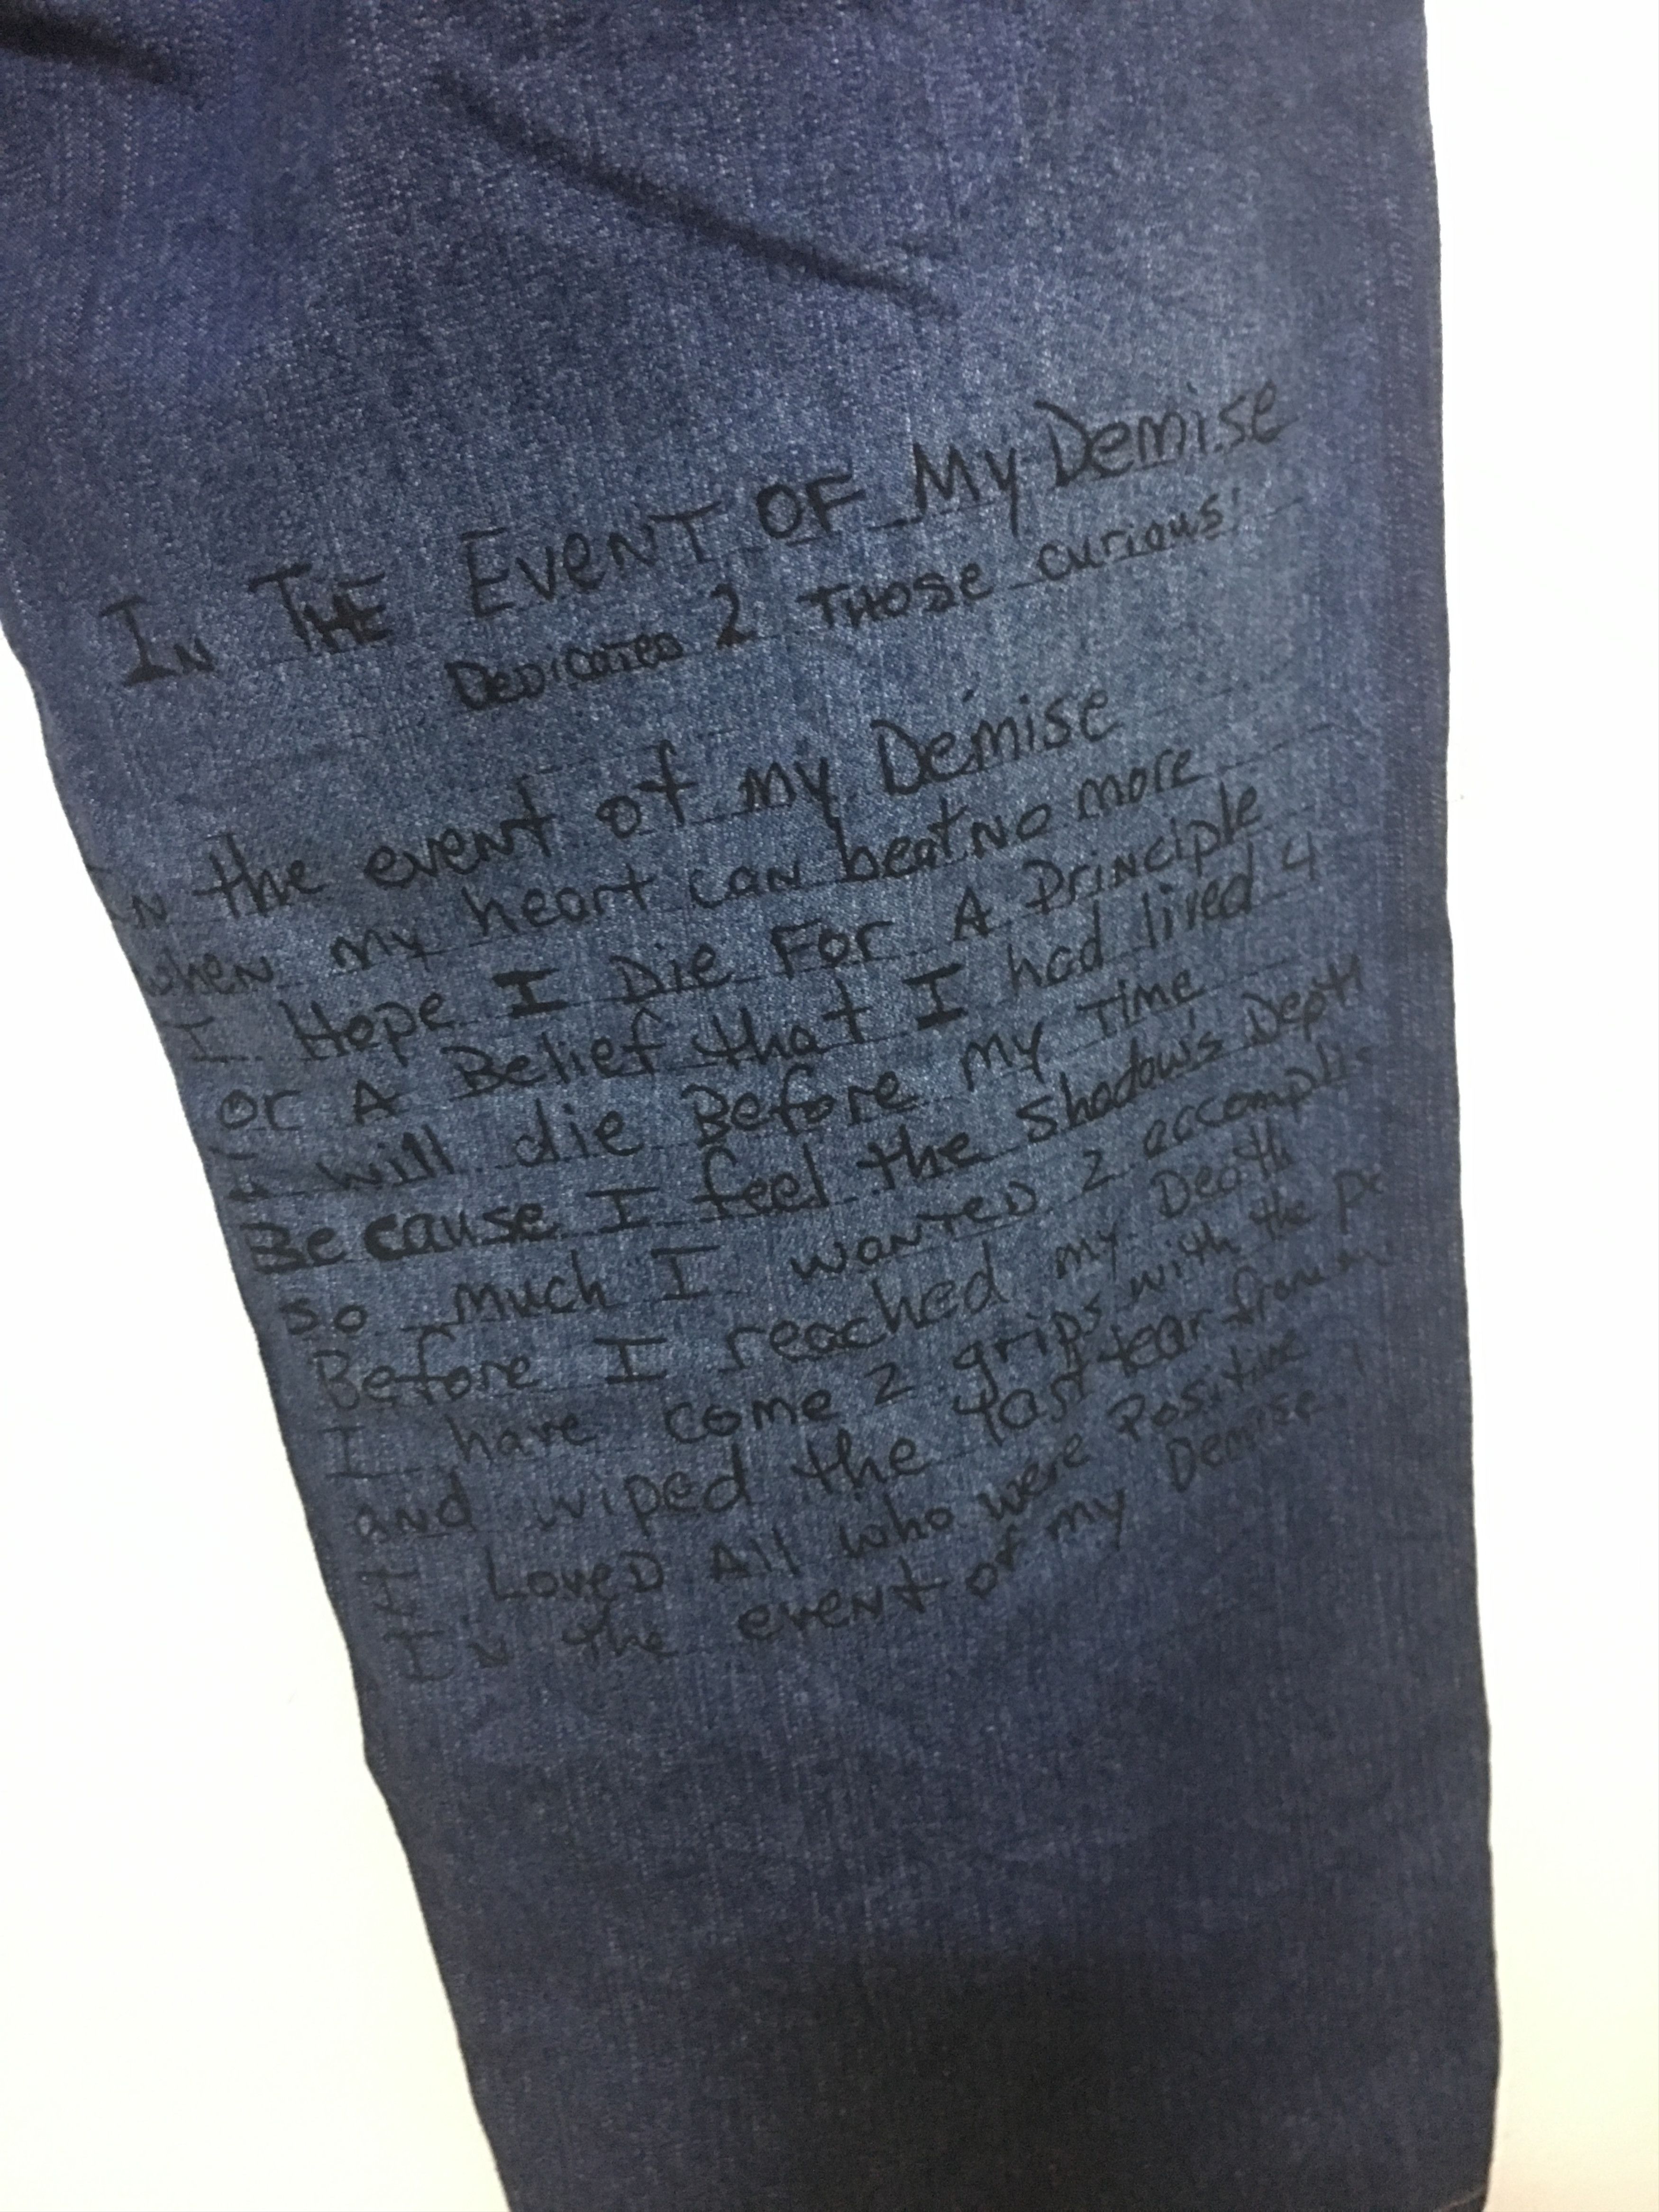 IN THE EVENT OF My Demise
DEDICATED 2 THOSE curious
In the event of my Demise
when my heart can beat no more
I Hope I Die For A Principle
or A Belief that I had lived 4
I will die Before my Time
Because I feel the shadow's Depth
so much I wanted 2 accomplis
Before I reached my Death
I have come 2 grips with the po
and wiped the last tear from m
I Loved All who were Positive
In the event of my Demise.